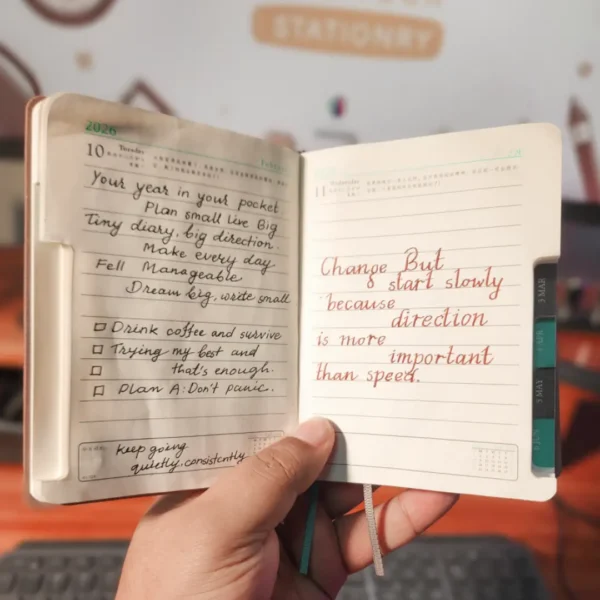 STATIONRY
2026
10
Tuesday
Your year in your pocket
Plan small live Big
Tiny diary, big direction.
Make every day
Fell Manageable
Dream big, write small
Drink coffee and survive
Trying my best and
that's enough.
Plan A: Don't panic.
Keep going
quietly, consistently
11
Wednesday
Change But
start slowly
because
direction
is more
important
than speed.
3 MAR
4 APR
5 MAY
6 JUN